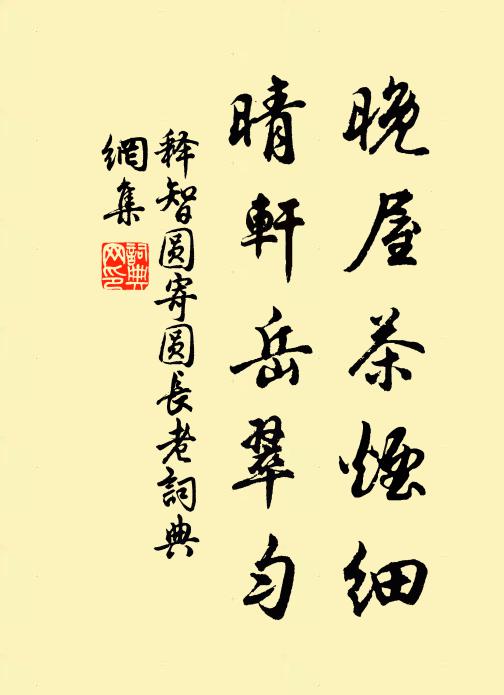 晚屋茶煙細
晴軒岳翠勻
释智圆寄圆長老詞典
網集
詞典
网印